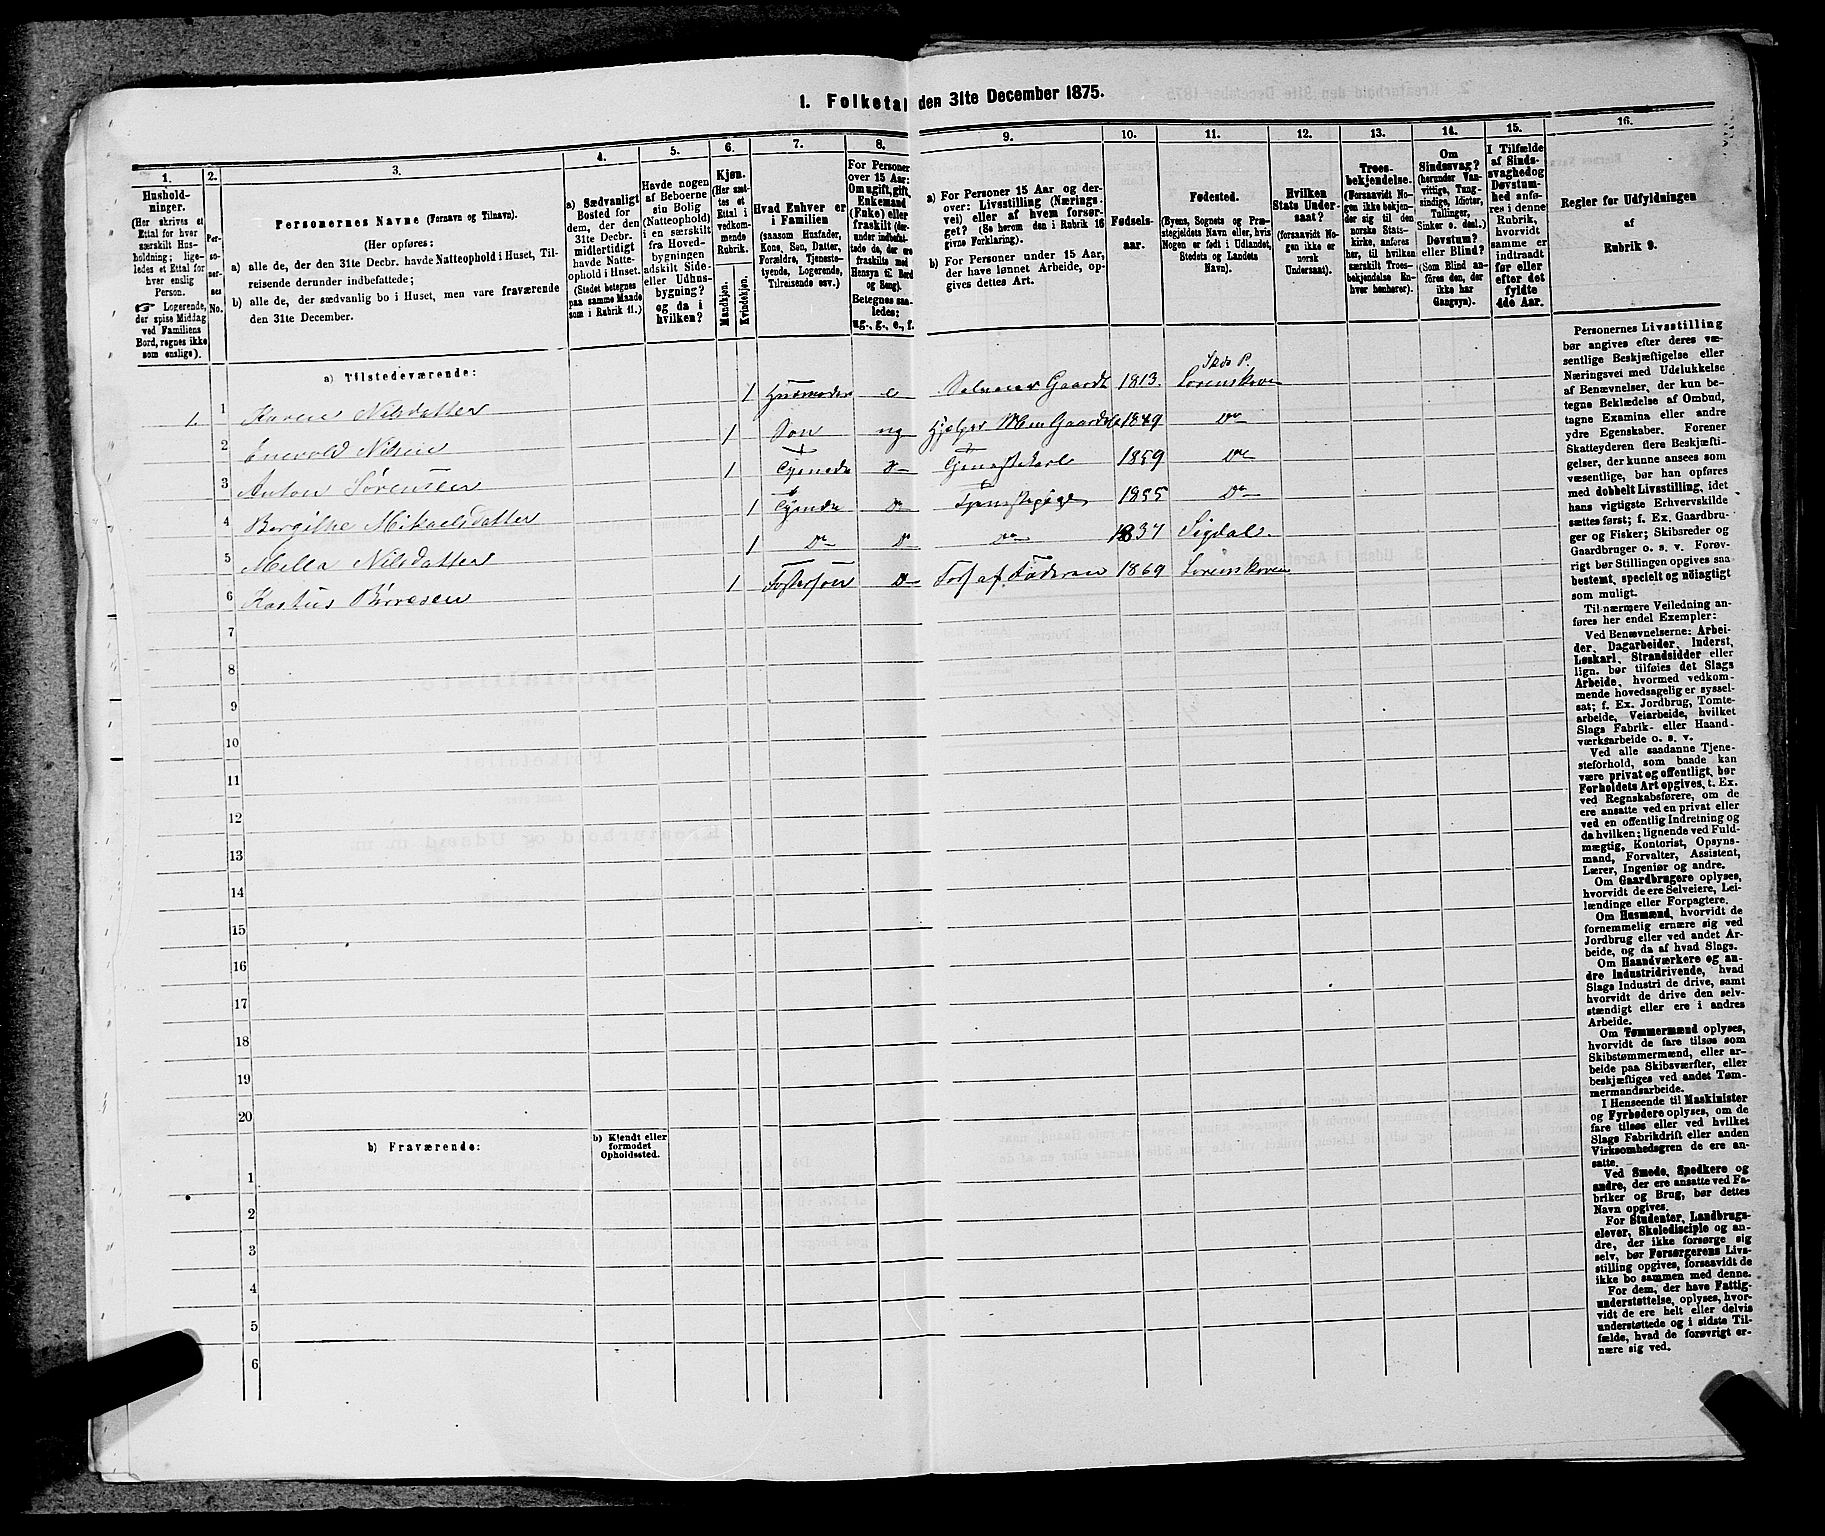 1. Folketal den 31te December 1875.
1.
2.
3.
4.
5.
6.
7.
8.
9.
10.
11.
12.
13.
14.
15.
16.
Hushold-
ninger.
(Her skrives et
Ettal for hver
særskilt Hus-
holdning; lige-
ledes et Ettal for
hver enslig
Person.
☞ Logerende,
der spise Middag
ved Familiens
Bord, regnes ikke
som enslige).
Per-
so-
ner-
nes
No.
Personernes Navne (Fornavn og Tilnavn).
(Her opføres:
a) alle de, der den 31te Decbr. havde Natteophold i Huset, Til-
reisende derunder indbefattede;
b) alle de, der sædvanlig bo i Huset, men vare fraværende
den 31te December.
a) Sædvanligt
Bosted for
dem, der den
31te Decbr.
midlertidigt
havde Natte-
ophold i Huset.
(Stedet betegnes
paa samme Maade
som i Rubrik 11.)
Havde nogen
af Beboerne
sin Bolig
(Natteophold)
i en særskilt
fra Hoved-
bygningen
adskilt Side-
eller Udhus-
bygning?
og da i
hvilken?
Kjøn.
(Her sæt-
tes et
Ettal i
vedkom-
mende
Rubrik.
Mandkjøn.
Kvindekjøn.
Hvad Enhver er
i Familien
(saasom Husfader,
Kone, Søn, Datter,
Forældre, Tjeneste-
tyende, Logerende,
Tilreisende osv.)
For Personer
over 15 Aar:
Om ugift, gift,
Enkemand
(Enke) eller
fraskilt (der-
under indbefat-
tede de, der ere
fraskilte med
Hensyn til Bord
og Seng).
Betegnes saa-
ledes:
ug., g., e., f.
a) For Personer 15 Aar og der-
over: Livsstilling (Nærings-
vei) eller af hvem forsør-
get? (Se herom den i Rubrik 16
givne Forklaring).
b) For Personer under 15 Aar,
der have lønnet Arbeide, op-
gives dettes Art.
Fødsels-
aar.
Fødested.
(Byens, Sognets og Præ-
stegjeldets Navn eller, hvis
Nogen er født i Udlandet,
Stedets og Landets
Navn).
Hvilken
Stats Under-
saat?
(forsaavidt No-
gen ikke er
norsk
Undersaat).
Troes-
bekjendelse.
(Forsaavidt No-
gen ikke bekjen-
der sig til den
norske Stats-
kirke, anføres
her, til hvilken
særskilt Troes-
bekjendelse En-
hver henhører).
Om
Sindssvag?
(herunder Van-
vittige, Tung-
sindige, Idioter,
Tullinger,
Sinker o. desl.)
Døvstum?
eller Blind?
(Som Blind an-
føres den, der
ikke har
Gangsyn).
I Tilfælde
af Sinds-
svaghed og
Døvstum-
hed anfø-
res i denne
Rubrik,
hvorvidt
samme er
indtraadt
før eller
efter det
fyldte
4de Aar.
Regler for Udfyldningen
af
Rubrik 9.
a) Tilstedeværende:
1. 1 Karen Nilsdatter 1 Husmoder e Selveier Gaardb 1813. Skds P. Lørenskoven
2 Enevold Nilsen 1 Søn ug Hjelper Moren Gaardsbr 1849 Do
3 Anton Sørensen 1 Tjenede Do Tjenestekarl 1859 Do
4 Bergithe Mikaelsdatter 1 Tjende Do Tjenestepige 1855 Do
5 Mella Nilsdatter 1 Do Do Do 1837 Sigdal.
6 Kastus Børresen 1 Fostersøn Do Fors. af Faderen 1869 Lørenskoven
7
8
9
10
11
12
13
14
15
16
17
18
19
20
b) Fraværende:
b) Kjendt eller
formodet
Opholdssted.
1
2
3
4
5
6
Personernes Livsstilling
bør angives efter deres væ-
sentlige Beskjæftigelse eller
Næringsvei med Udelukkelse
af Benævnelser, der kun be-
tegne Beklædelse af Ombud,
tagne Examina eller andre
ydre Egenskaber. Forener
Skatteyderen flere Beskjæfti-
gelser, der kunne ansees som
væsentlige, bør han opføres
med dobbelt Livsstilling, idet
hans vigtigste Erhvervskilde
sættes først; f. Ex. Gaardbru-
ger og Fisker; Skibsreder og
Gaardbruger o. s. v. Forøv-
rigt bør Stillingen opgives saa
bestemt, specielt og nøiagtigt
som muligt.
Til nærmere Veiledning an-
føres her endel Exempler:
Ved Benævnelserne: Arbei-
der, Dagarbeider, Inderst,
Løskarl, Strandsidder eller
lign. bør tilføies det Slags
Arbeide, hvormed vedkom-
mende hovedsagelig er syssel-
sat; f. Ex. Jordbrug, Tomte-
arbeide, Veiarbeide, hvilket
Slags Fabrik- eller Haand-
værksarbeide o. s. v.
Ved alle saadanne Tjene-
steforhold, som baade kan
være privat og offentligt, bør
Forholdets Art opgives, t. Ex.
ved Regnskabsførere, om de
ere ansatte ved en privat eller
ved en offentlig Indretning og
da hvilken; lignende ved Fuld-
mægtig, Kontorist, Opsyns-
mand, Forvalter, Assistent,
Lærer, Ingeniør og andre.
Om Gaardbrugere oplyses,
hvorvidt de ere Selveiere, Lei-
lændinge eller Forpagtere.
Om Husmænd, hvorvidt de
fornemmelig ernære sig ved
Jordbrug eller ved andet Ar-
beide, og da af hvad Slags.
Om Haandværkere og an-
dre Industridrivende, hvad
Slags Industri de drive, samt
hvorvidt de drive den selv-
stændigt eller ere i andres
Arbeide.
Om Tømmermænd oplyses,
hvorvidt de fare tilsøs som
Skibstømmermænd, eller ar-
beide paa Skibsværfter, eller
beskjæftiges ved andet Tøm-
mermandsarbeide.
I Henseende til Maskinister
og Fyrbødere oplyses, om de
fare tilsøs eller ved hvilket
Slags Fabrikdrift eller anden
Virksomhedsgren de ere an-
satte.
Ved Smede, Snedkere og
andre, der ere ansatte ved Fa-
briker og Brug, bør dettes
Navn opgives.
For Studenter, Landbrugs-
elever, Skoledisciple og an-
dre, der ikke forsørge sig
selv, bør Forsørgerens Livs-
stilling opgives, forsaavidt de
ikke bo sammen med denne.
For dem, der have Fattig-
understøttelse, oplyses, hvor-
vidt de ere helt eller delvis
understøttede og i sidste Til-
fælde, hvad de forøvrigt er-
nære sig ved.